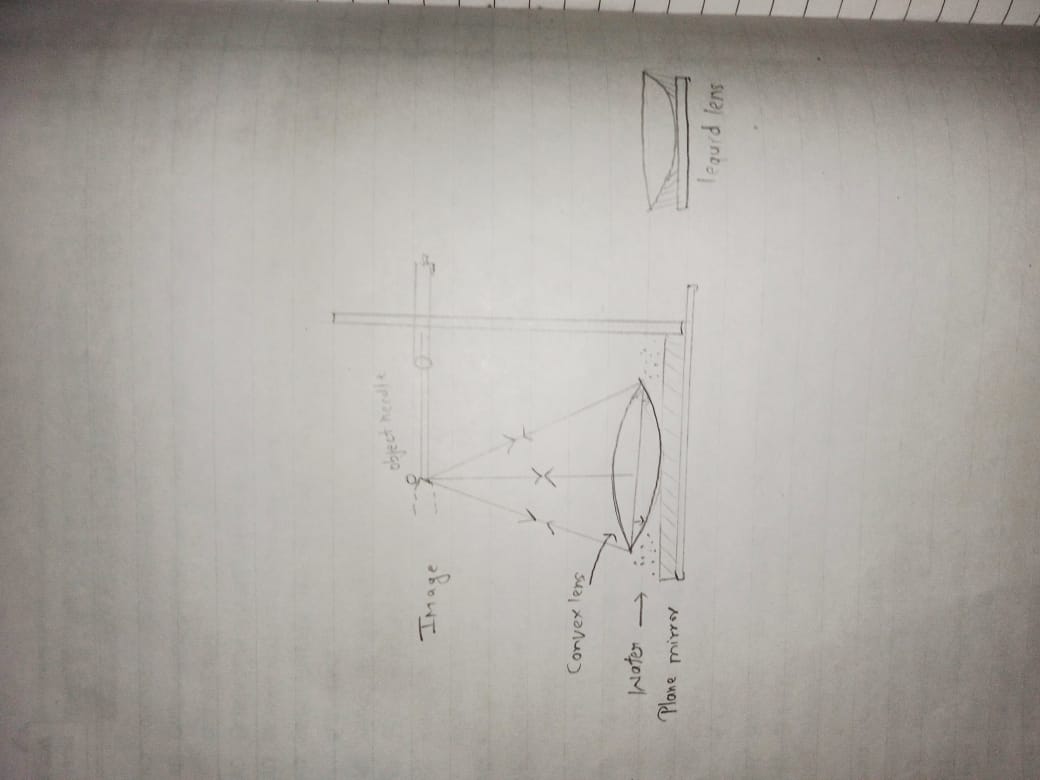 object needle
Image
Convex lens
Water
Plane mirror
lequid lens